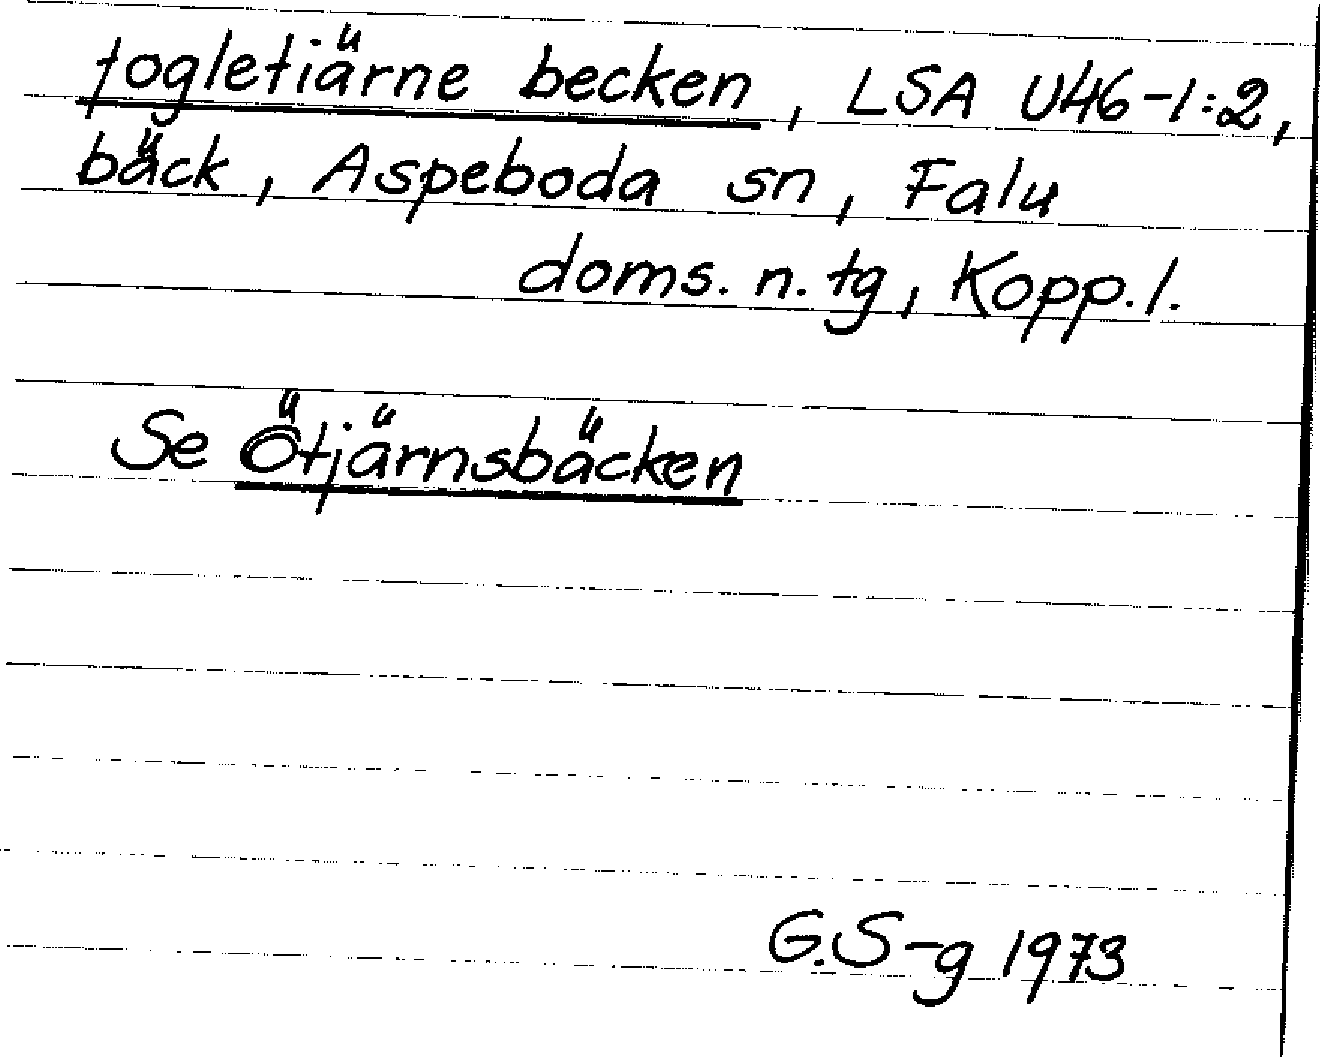 fogletiärne becken, LSA U46-1:2,
bäck, Aspeboda sn, Falu
doms. n. tg, Kopp. l.
Se Ötjärnsbäcken
G.S-g 1973